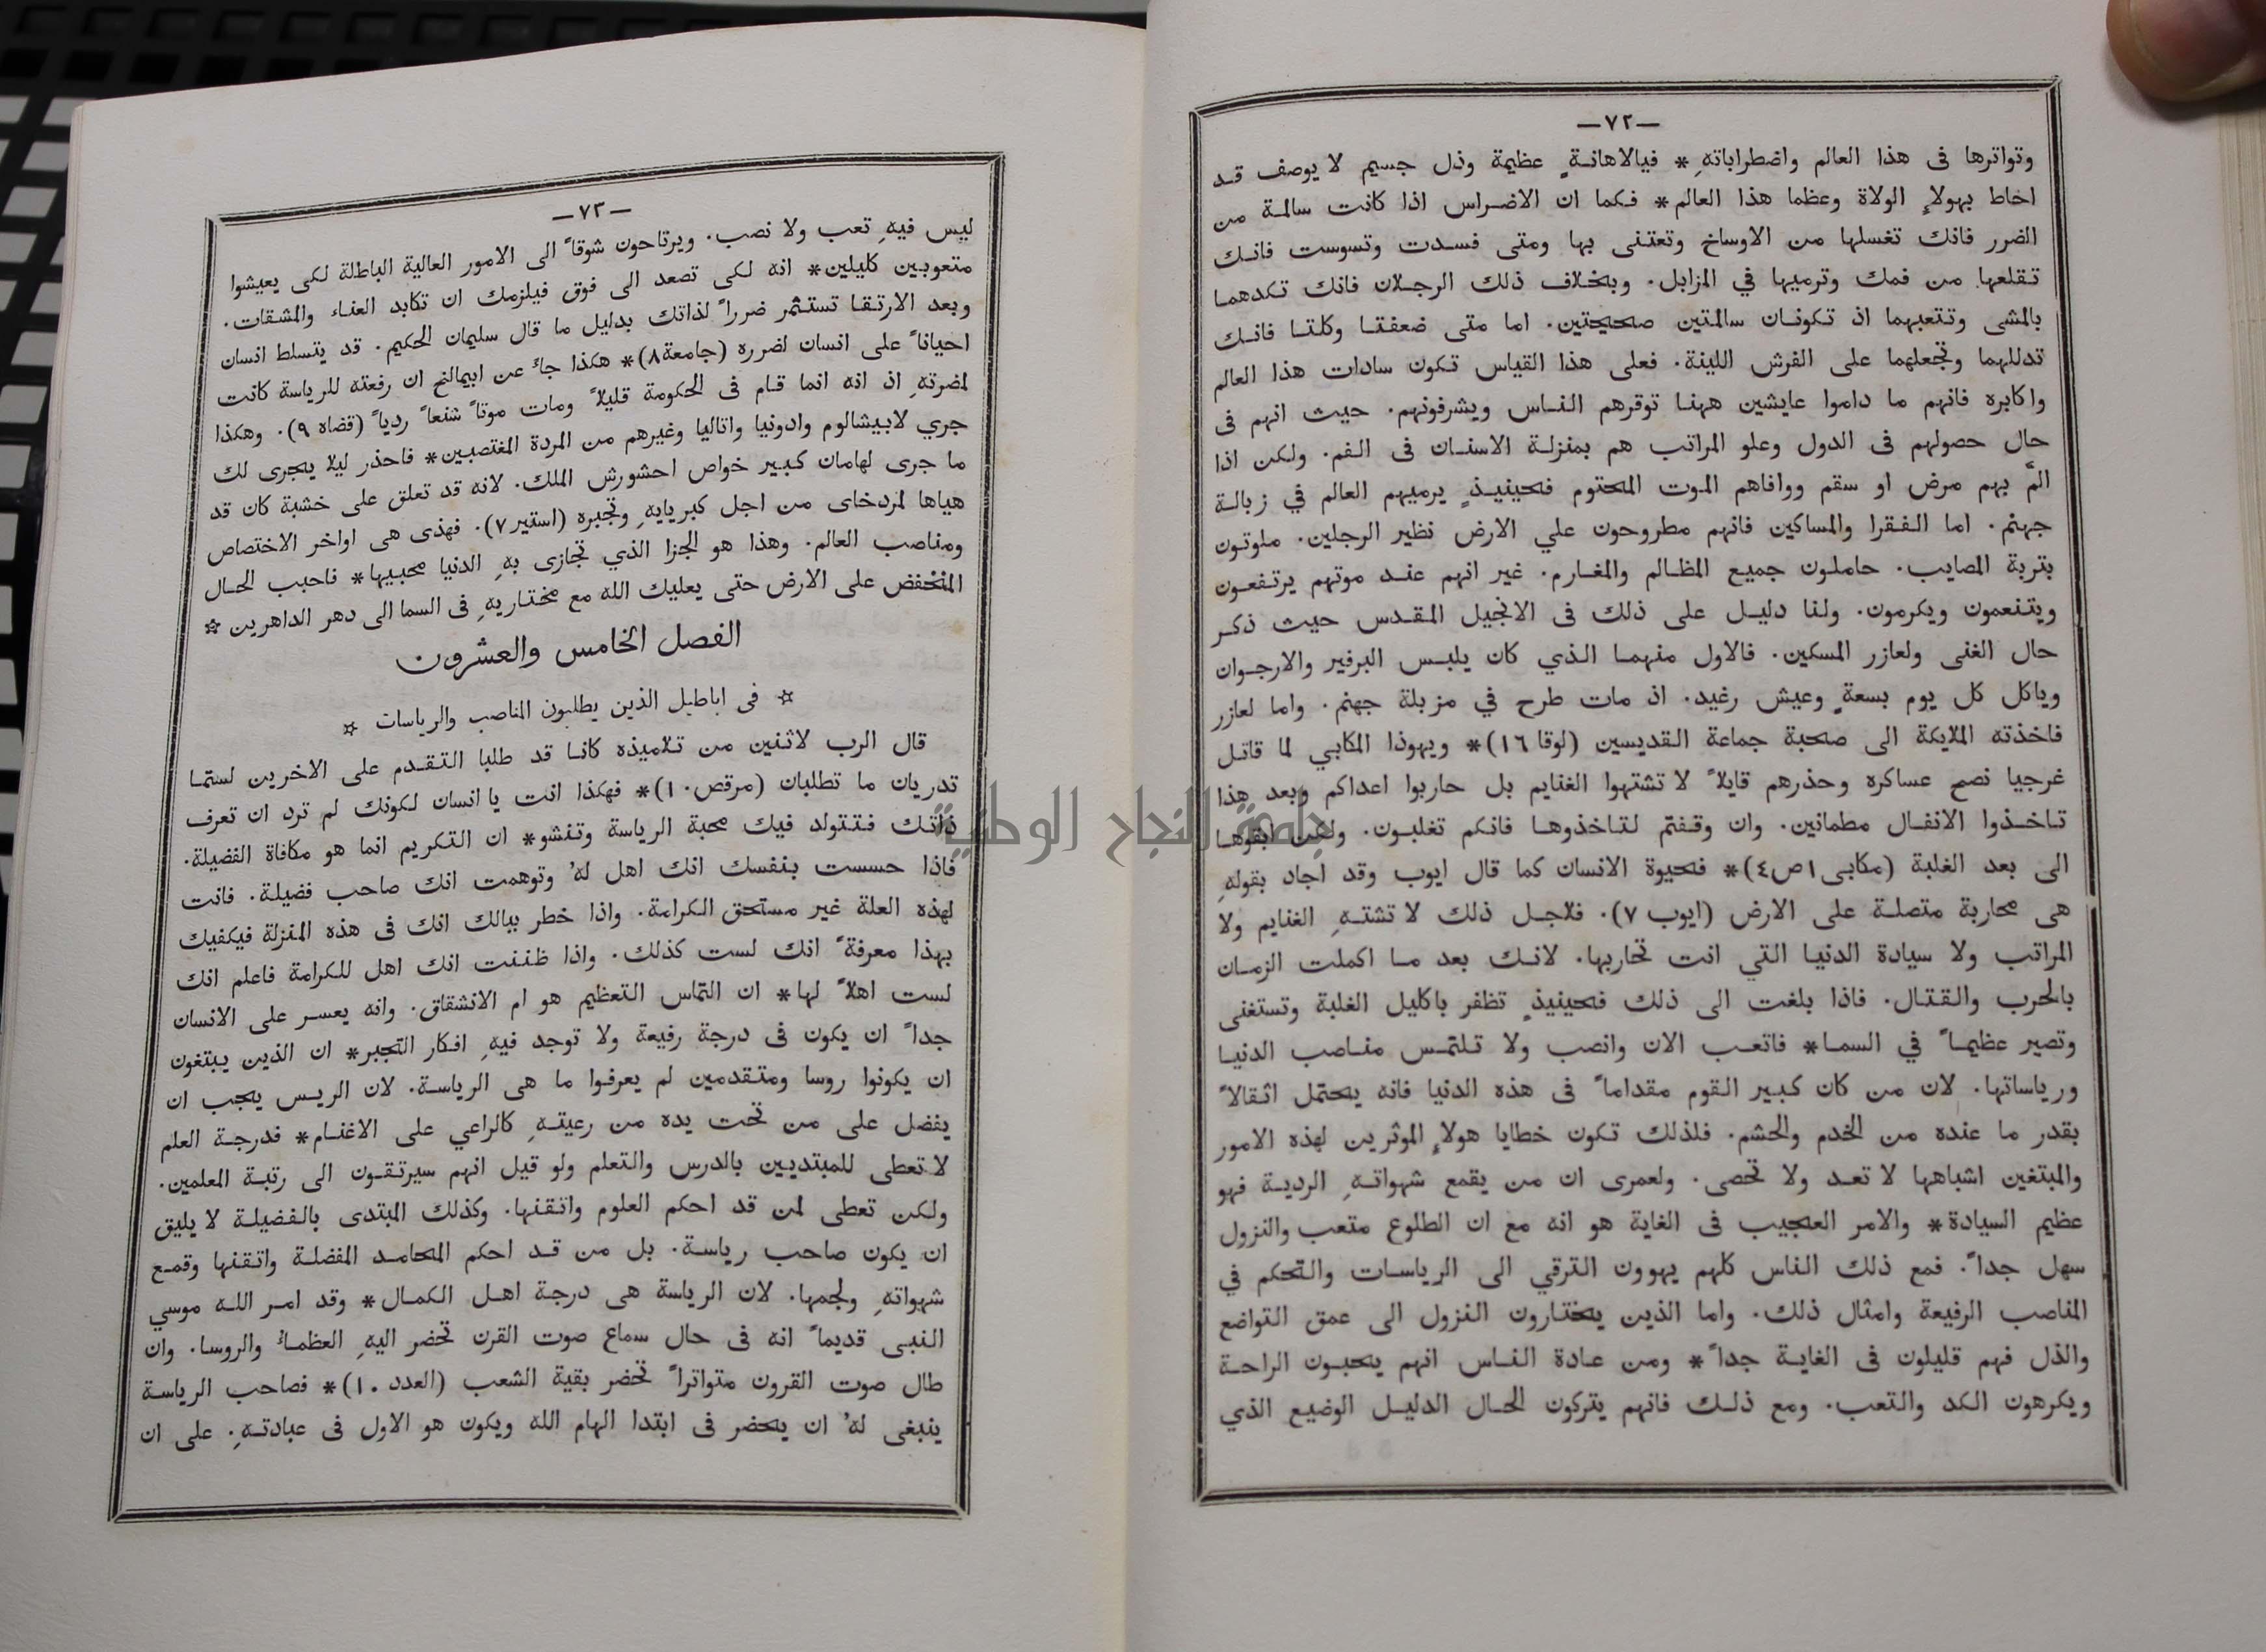 —٧٢—
وتواترها فى هذا العالم واضطراباتهِ * فيالاهانةٍ عظيمة وذل جسيم لا يوصف قد
احاط بهولاءِ الولاة وعظما هذا العالم * فكما ان الاضراس اذا كانت سالمة من
الضرر فانك تغسلها من الاوساخ وتعتنى بها ومتى فسدت وتسوست فانك
تقلعها من فمك وترميها في المزابل. وبخلاف ذلك الرجلان فانك تكدهما
بالمشى وتتعبهما اذ تكونان سالمتين صحيحتين. اما متى ضعفتا وكلتا فانك
تدللهما وتجعلهما على الفرش اللينة. فعلى هذا القياس تكون سادات هذا العالم
واكابره فانهم ما داموا عايشين ههنا توقرهم الناس ويشرفونهم. حيث انهم فى
حال حصولهم فى الدول وعلو المراتب هم بمنزلة الاسنان فى الفم. ولكن اذا
المَّ بهم مرض او سقم ووافاهم الموت المحتوم فحينيذٍ يرميهم العالم في زبالة
جهنم. اما الفقرا والمساكين فانهم مطروحون علي الارض نظير الرجلين. ملوتون
بتربة المصايب. حاملون جميع المظالم والمغارم. غير انهم عند موتهم يرتفعون
ويتنعمون ويكرمون. ولنا دليل على ذلك فى الانجيل المقدس حيث ذكر
حال الغنى ولعازر المسكين. فالاول منهما الذي كان يلبس البرفير والارجوان
وياكل كل يوم بسعةٍ وعيش رغيد. اذ مات طرح في مزبلة جهنم. واما لعازر
فاخذته الملايكة الى صحبة جماعة القديسين (لوقا ١٦) * ويهوذا المكابي لما قاتل
غرجيا نصح عساكره وحذرهم قايلاً لا تشتهوا الغنايم بل حاربوا اعداكم وبعد هذا
تاخذوا الانفال مطمانين. وان وقفتم لتاخذوها فانكم تغلبون. ولكن ابقوها
الى بعد الغلبة (مكابى ١ ص ٤) * فحيوة الانسان كما قال ايوب وقد اجاد بقولهِ
هى محاربة متصلة على الارض (ايوب ٧). فلاجل ذلك لا تشتهِ الغنايم ولا
المراتب ولا سيادة الدنيا التي انت تحاربها. لانك بعد ما اكملت الزمان
بالحرب والقتال. فاذا بلغت الى ذلك فحينيذٍ تظفر باكليل الغلبة وتستغنى
وتصير عظيماً في السما * فاتعب الان وانصب ولا تلتمس مناصب الدنيا
ورياساتها. لان من كان كبير القوم مقداماً فى هذه الدنيا فانه يحتمل اثقالاً
بقدر ما عنده من الخدم والحشم. فلذلك تكون خطايا هولاءِ الموثرين لهذه الامور
والمبتغين اشباهها لا تعد ولا تحصى. ولعمرى ان من يقمع شهواتهِ الردية فهو
عظيم السيادة * والامر العجيب فى الغاية هو انه مع ان الطلوع متعب والنزول
سهل جداً. فمع ذلك الناس كلهم يهوون الترقي الى الرياسات والتحكم في
المناصب الرفيعة وامثال ذلك. واما الذين يختارون النزول الى عمق التواضع
والذل فهم قليلون فى الغاية جداً * ومن عادة الناس انهم يحبون الراحة
ويكرهون الكد والتعب. ومع ذلك فانهم يتركون الحال الدليل الوضيع الذي
—٧٣—
ليس فيهِ تعب ولا نصب. ويرتاحون شوقاً الى الامور العالية الباطلة لكى يعيشوا
متعوبين كليلين * انه لكى تصعد الى فوق فيلزمك ان تكابد العناء والمشقات.
وبعد الارتقا تستثمر ضرراً لذاتك بدليل ما قال سليمان الحكيم. قد يتسلط انسان
احياناً على انسان لضرره (جامعة ٨) * هكذا جاءَ عن ابيمالخ ان رفعته للرياسة كانت
لمضرتهِ اذ انه انما قام فى الحكومة قليلاً ومات موتاً شنعاً ردياً (قضاه ٩). وهكذا
جري لابيشالوم وادونيا واتاليا وغيرهم من المردة المغتصبين * فاحذر ليلا يجرى لك
ما جرى لهامان كبير خواص احشورش الملك. لانه قد تعلق على خشبة كان قد
هياها لمردخاى من اجل كبريايهِ وتجبره (استير ٧). فهذى هى اواخر الاختصاص
ومناصب العالم. وهذا هو الجزا الذي تجازى بهِ الدنيا محبيها * فاحبب الحال
المنخفض على الارض حتى يعليك الله مع مختاريهِ فى السما الى دهر الداهرين ☆
الفصل الخامس والعشرون
☆ فى اباطيل الذين يطلبون المناصب والرياسات ☆
قال الرب لاثنين من تلاميذه كانا قد طلبا التقدم على الاخرين لستما
تدريان ما تطلبان (مرقص ١٠) * فهكذا انت يا انسان لكونك لم ترد ان تعرف
ذاتك فتتولد فيك محبة الرياسة وتنشو * ان التكريم انما هو مكافاة الفضيلة.
فاذا حسست بنفسك انك اهل لهُ وتوهمت انك صاحب فضيلة. فانت
لهذه العلة غير مستحق الكرامة. واذا خطر ببالك انك فى هذه المنزلة فيكفيك
بهذا معرفةً انك لست كذلك. واذا ظننت انك اهل للكرامة فاعلم انك
لست اهلاً لها * ان التماس التعظيم هو ام الانشقاق. وانه يعسر على الانسان
جداً ان يكون فى درجة رفيعة ولا توجد فيهِ افكار التجبر * ان الذين يبتغون
ان يكونوا روسا ومتقدمين لم يعرفوا ما هى الرياسة. لان الريس يجب ان
يفضل على من تحت يده من رعيتهِ كالراعي على الاغنام * فدرجة العلم
لا تعطى للمبتديين بالدرس والتعلم ولو قيل انهم سيرتقون الى رتبة المعلمين.
ولكن تعطى لمن قد احكم العلوم واتقنها. وكذلك المبتدى بالفضيلة لا يليق
ان يكون صاحب رياسة. بل من قد احكم المحامد المفضلة واتقنها وقمع
شهواتهِ ولجمها. لان الرياسة هى درجة اهل الكمال * وقد امر الله موسي
النبى قديماً انه فى حال سماع صوت القرن تحضر اليهِ العظماءُ والروسا. وان
طال صوت القرون متواتراً تحضر بقية الشعب (العدد ١٠) * فصاحب الرياسة
ينبغى لهُ ان يحضر فى ابتدا الهام الله ويكون هو الاول فى عبادتهِ. على ان
جامعة النجاح الوطنية